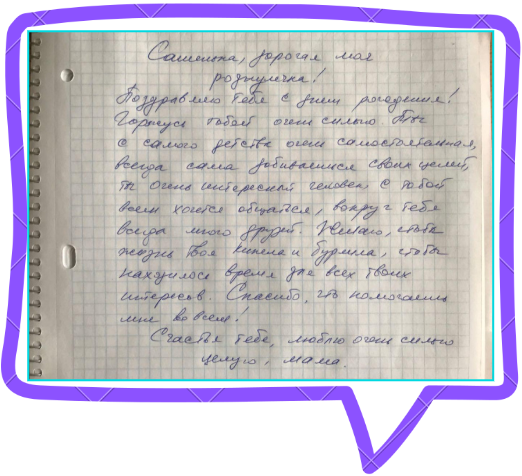 Сашенька, дорогая моя
родимулечка!
Поздравляю тебя с днем рождения!
Горжусь тобой очень сильно. Ты
с самого детства очень самостоятельная,
всегда сама добиваешься своих целей,
ты очень интересный человек с тобой
всем хочется общаться, вокруг тебя
всегда много друзей. Желаю, чтобы
жизнь твоя кипела и бурлила, чтобы
находилось время для всех твоих
интересов. Спасибо, что помогаешь
мне во всем!
Счастья тебе, люблю очень сильно
целую, мама.